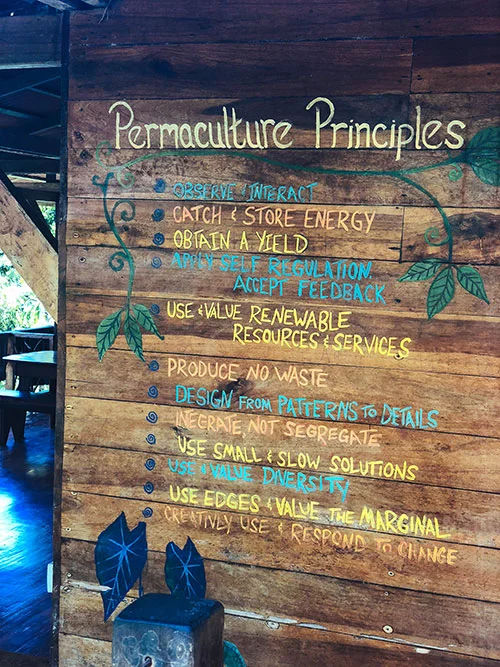 Permaculture Principles
OBSERVE & INTERACT
CATCH & STORE ENERGY
OBTAIN A YIELD
APPLY SELF REGULATION,
ACCEPT FEEDBACK
USE & VALUE RENEWABLE
RESOURCES & SERVICES
PRODUCE NO WASTE
DESIGN FROM PATTERNS TO DETAILS
INEGRATE, NOT SEGREGATE
USE SMALL & SLOW SOLUTIONS
USE & VALUE DIVERSITY
USE EDGES & VALUE THE MARGINAL
CREATIVLY USE & RESPOND TO CHANGE